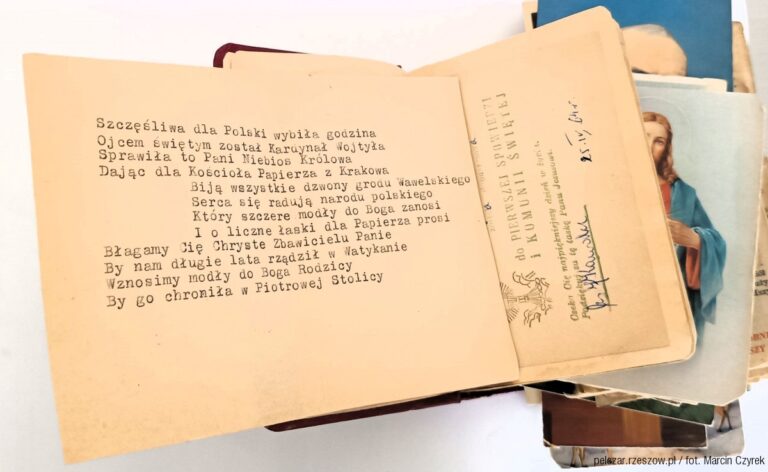 Szczęśliwa dla Polski wybiła godzina
Ojcem świętym został Kardynał Wojtyła
Sprawiła to Pani Niebios Królowa
Dając dla Kościoła Papierza z Krakowa
Biją wszystkie dzwony grodu Wawelskiego
Serca się radują narodu polskiego
Który szczere modły do Boga zanosi
I o liczne łaski dla Papierza prosi
Błagamy Cię Chryste Zbawicielu Panie
By nam długie lata rządził w Watykanie
Wznosimy modły do Boga Rodzicy
By go chroniła w Piotrowej Stolicy
do PIERWSZEJ SPOWIEDZI
i KOMUNII ŚWIĘTEJ
Czeka Cię najpiękniejszy dzień w życiu.
łaskę Pana Jezusową
25.IV.
pelczar.rzeszow.pl / fot. Marcin Czyrek